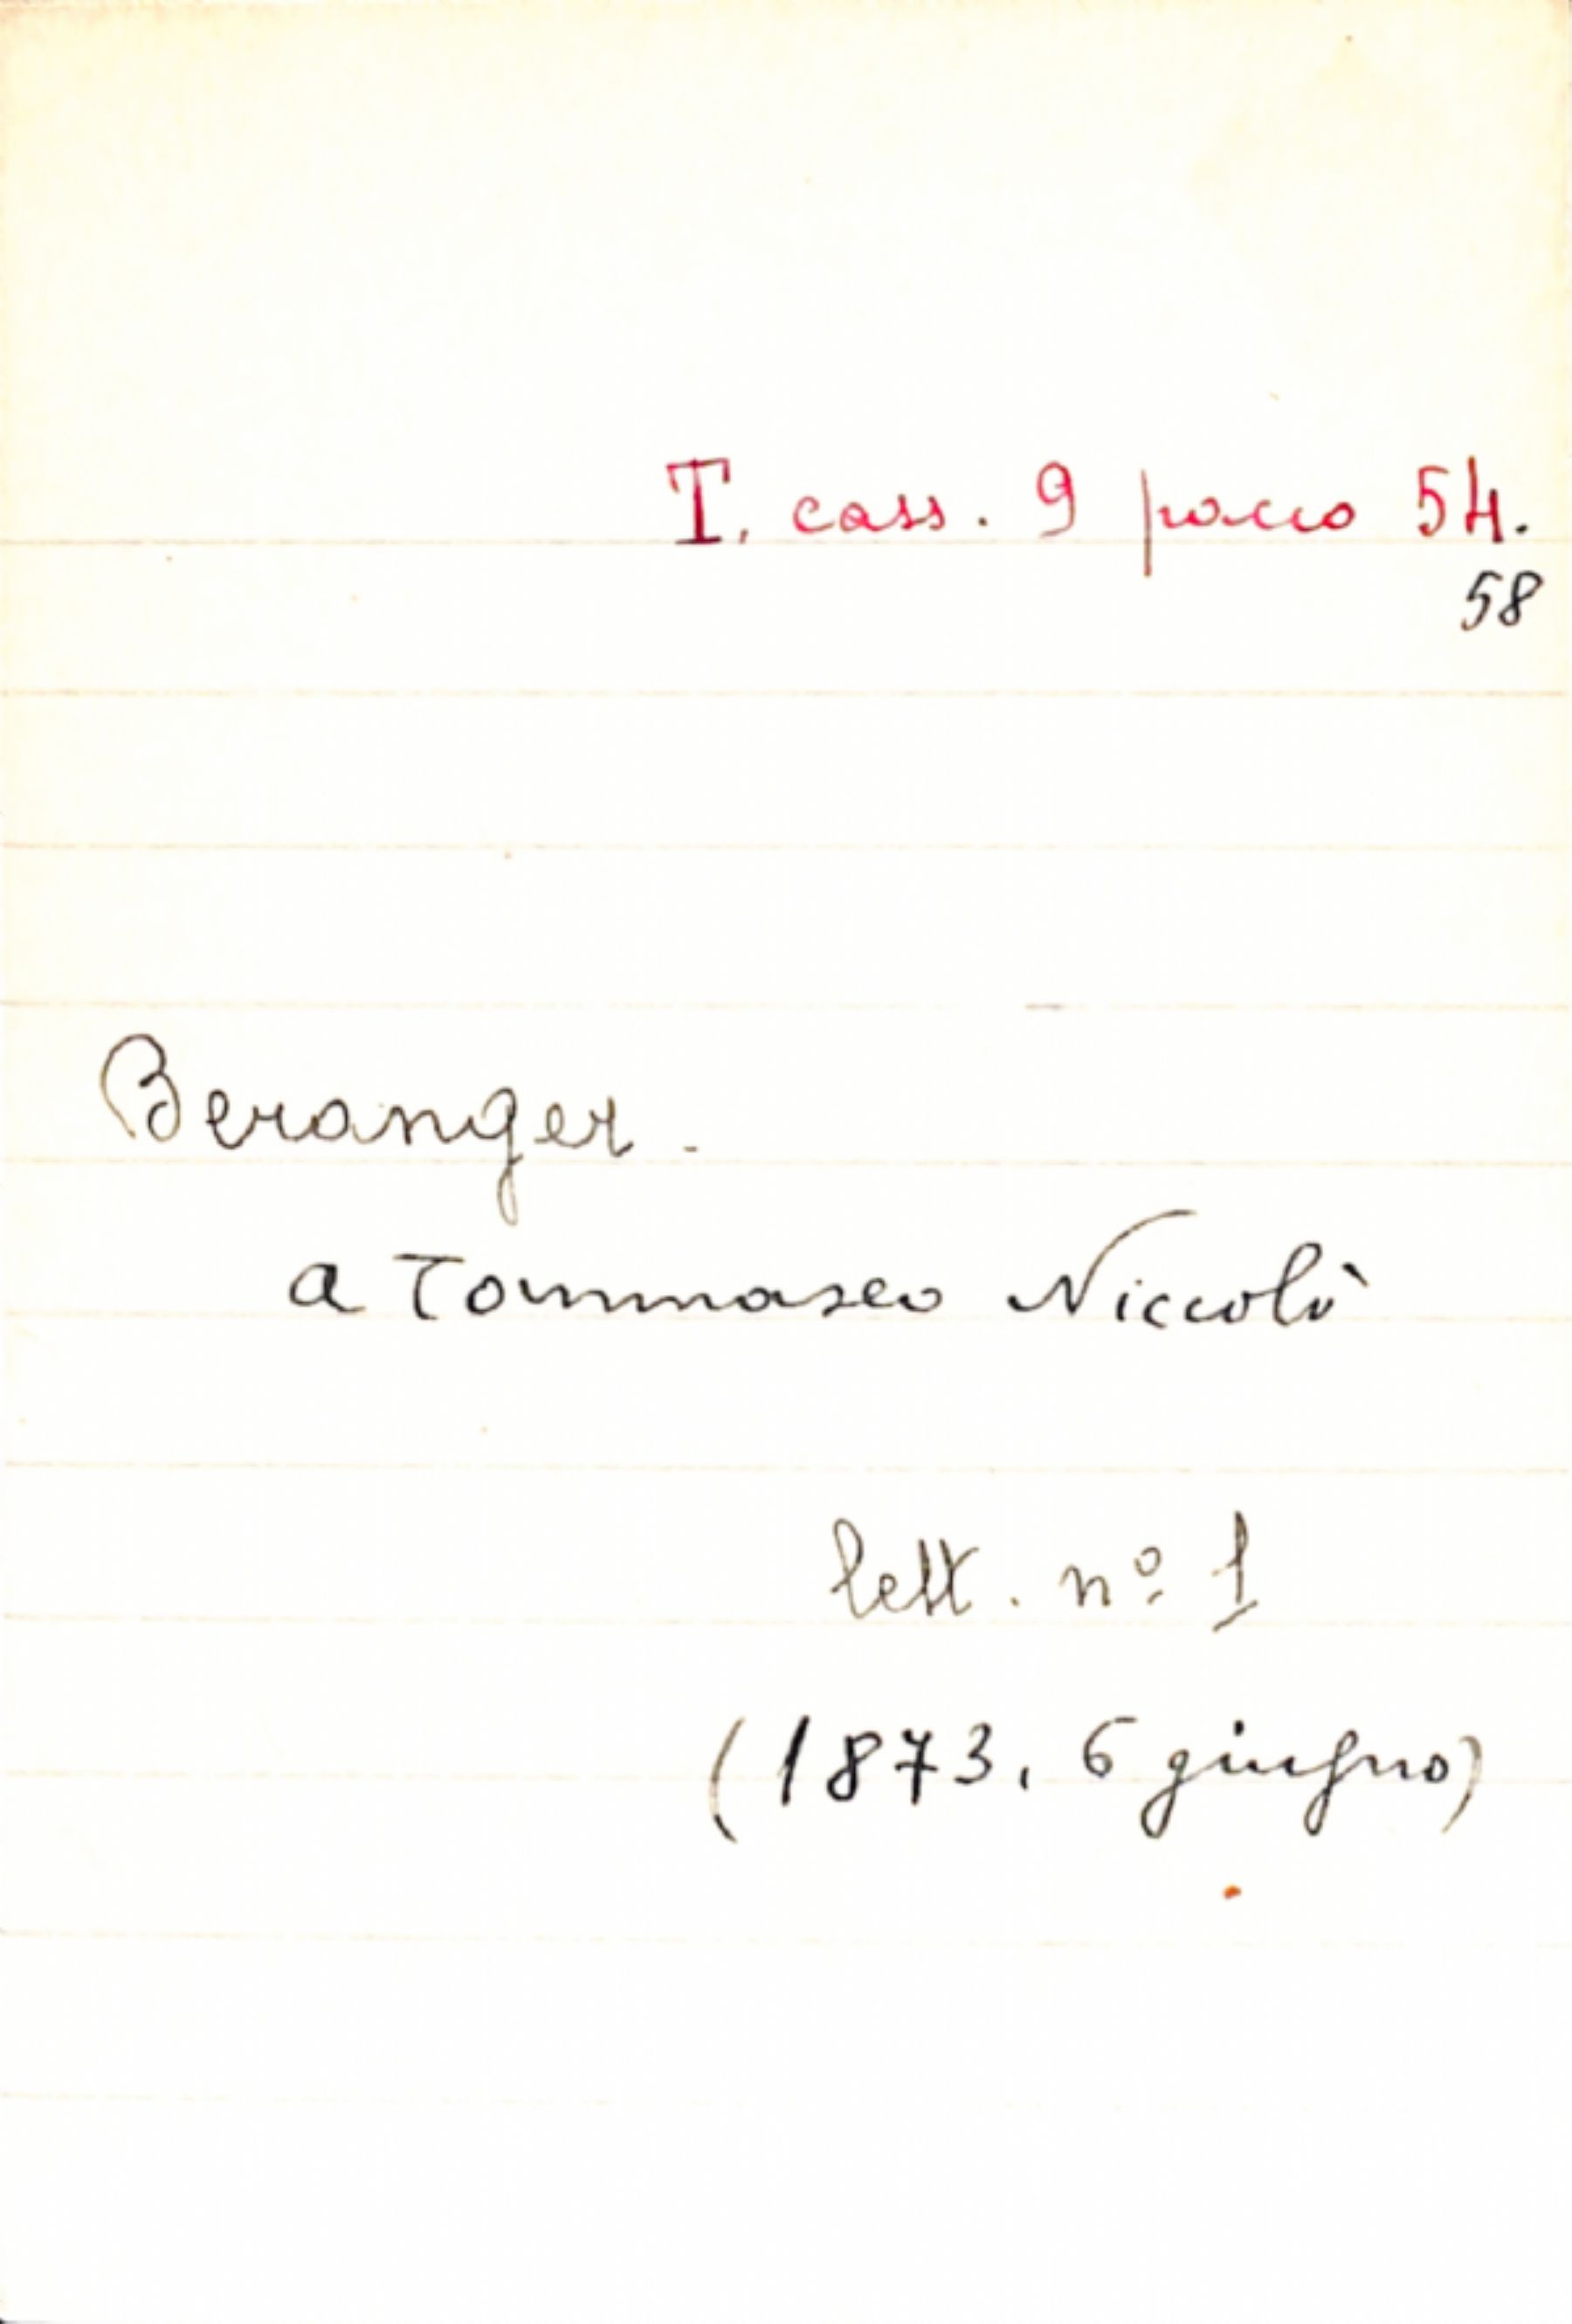 T. cass. 9 pacco 54.
58
Beranger.
a Tommaseo Niccolò
lett. nº 1
(1873, 6 giugno)